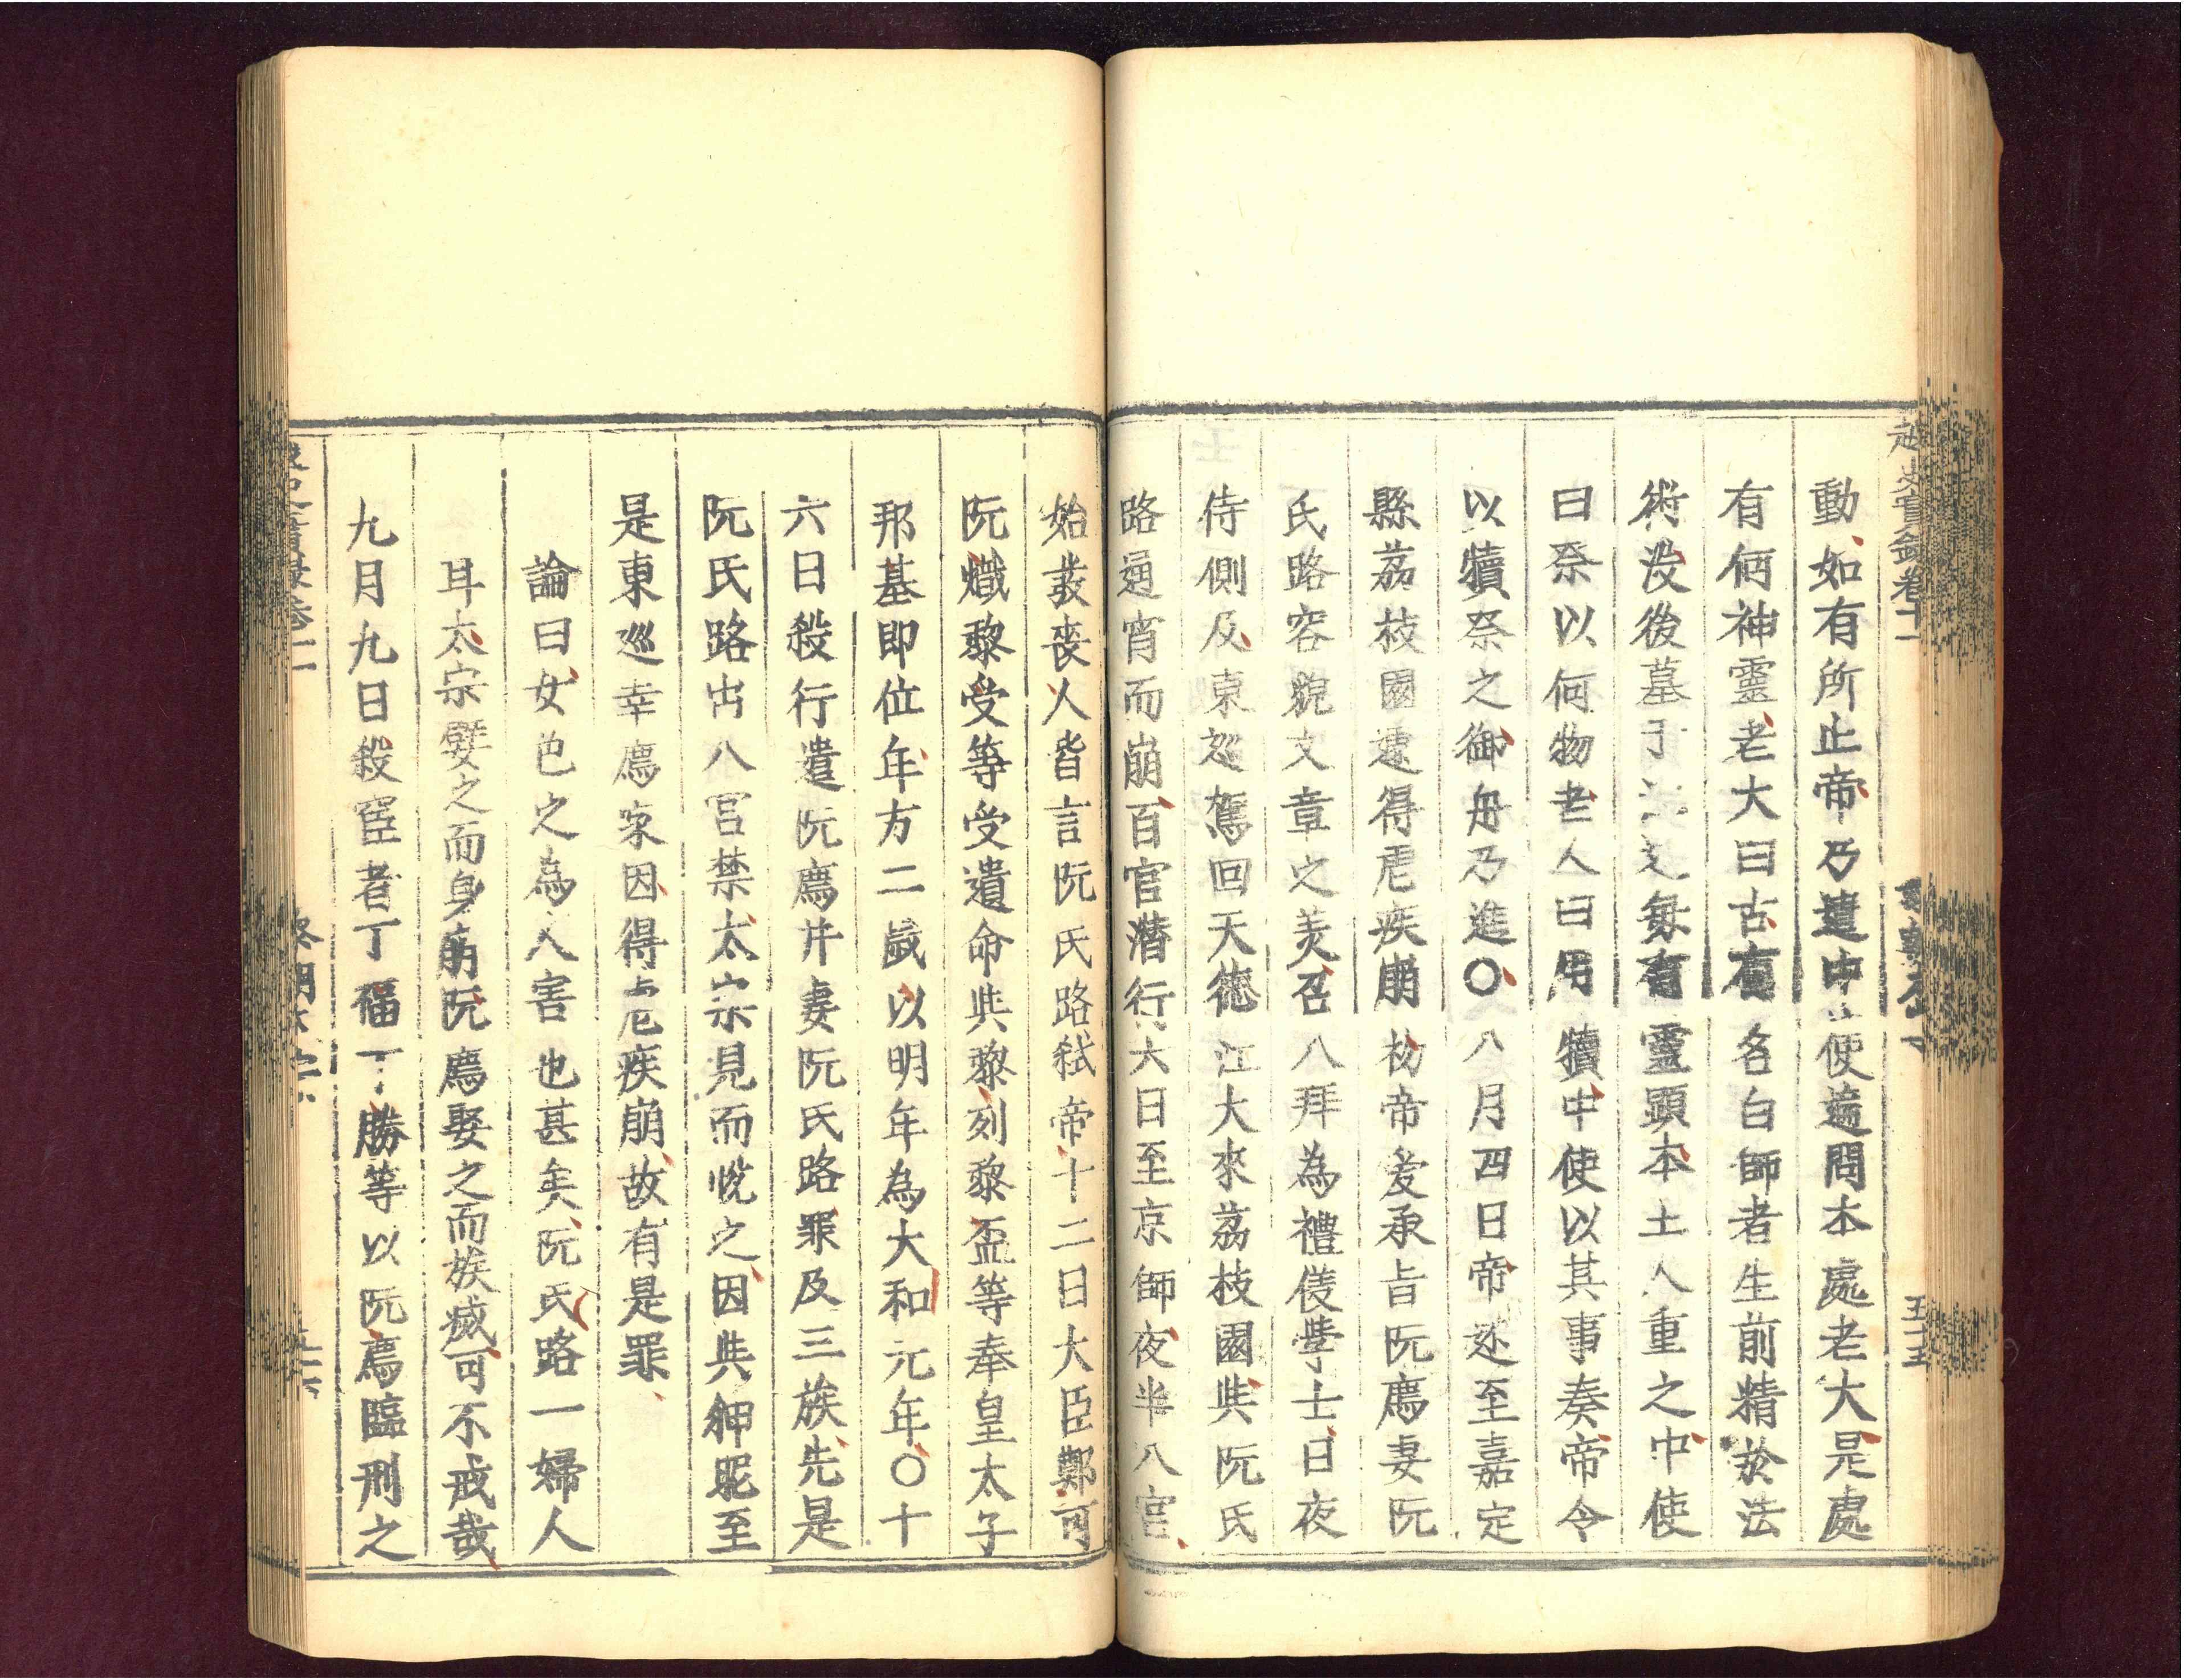 越史實錄卷十一
五十五
動如有所止帝乃遣中使遍問本處老大是處
有何神靈老大曰古有名白師者生前精於法
術没後墓于江文每有靈顕本土人重之中使
曰祭以何物老人曰用犢中使以其事奏帝令
以犢祭之御舟乃進〇八月四日帝还至嘉定
縣荔枝園遽得虐疾崩初帝爱承旨阮廌妻阮
氏路容貌文章之美召入拜為禮儀學士日夜
侍側及東巡駕回天徳江大來荔枝園與阮氏
路通宵而崩百官潜行六日至京師夜半入宫
始發喪人皆言阮氏路弑帝十二日大臣鄭可
阮熾黎受等受遺命與黎列黎盃等奉皇太子
邦基即位年方二歲以明年為大和元年〇十
六日殺行遣阮廌并妻阮氏路罪及三族先是
阮氏路出入宫禁太宗見而悦之因與狎昵至
是東巡幸廌家因得虐疾崩故有是罪
論曰女色之為人害也甚矣阮氏路一婦人
耳太宗嬖之而身崩阮廌娶之而族滅可不戒哉
九月九日殺宦者丁福丁勝等以阮廌臨刑之